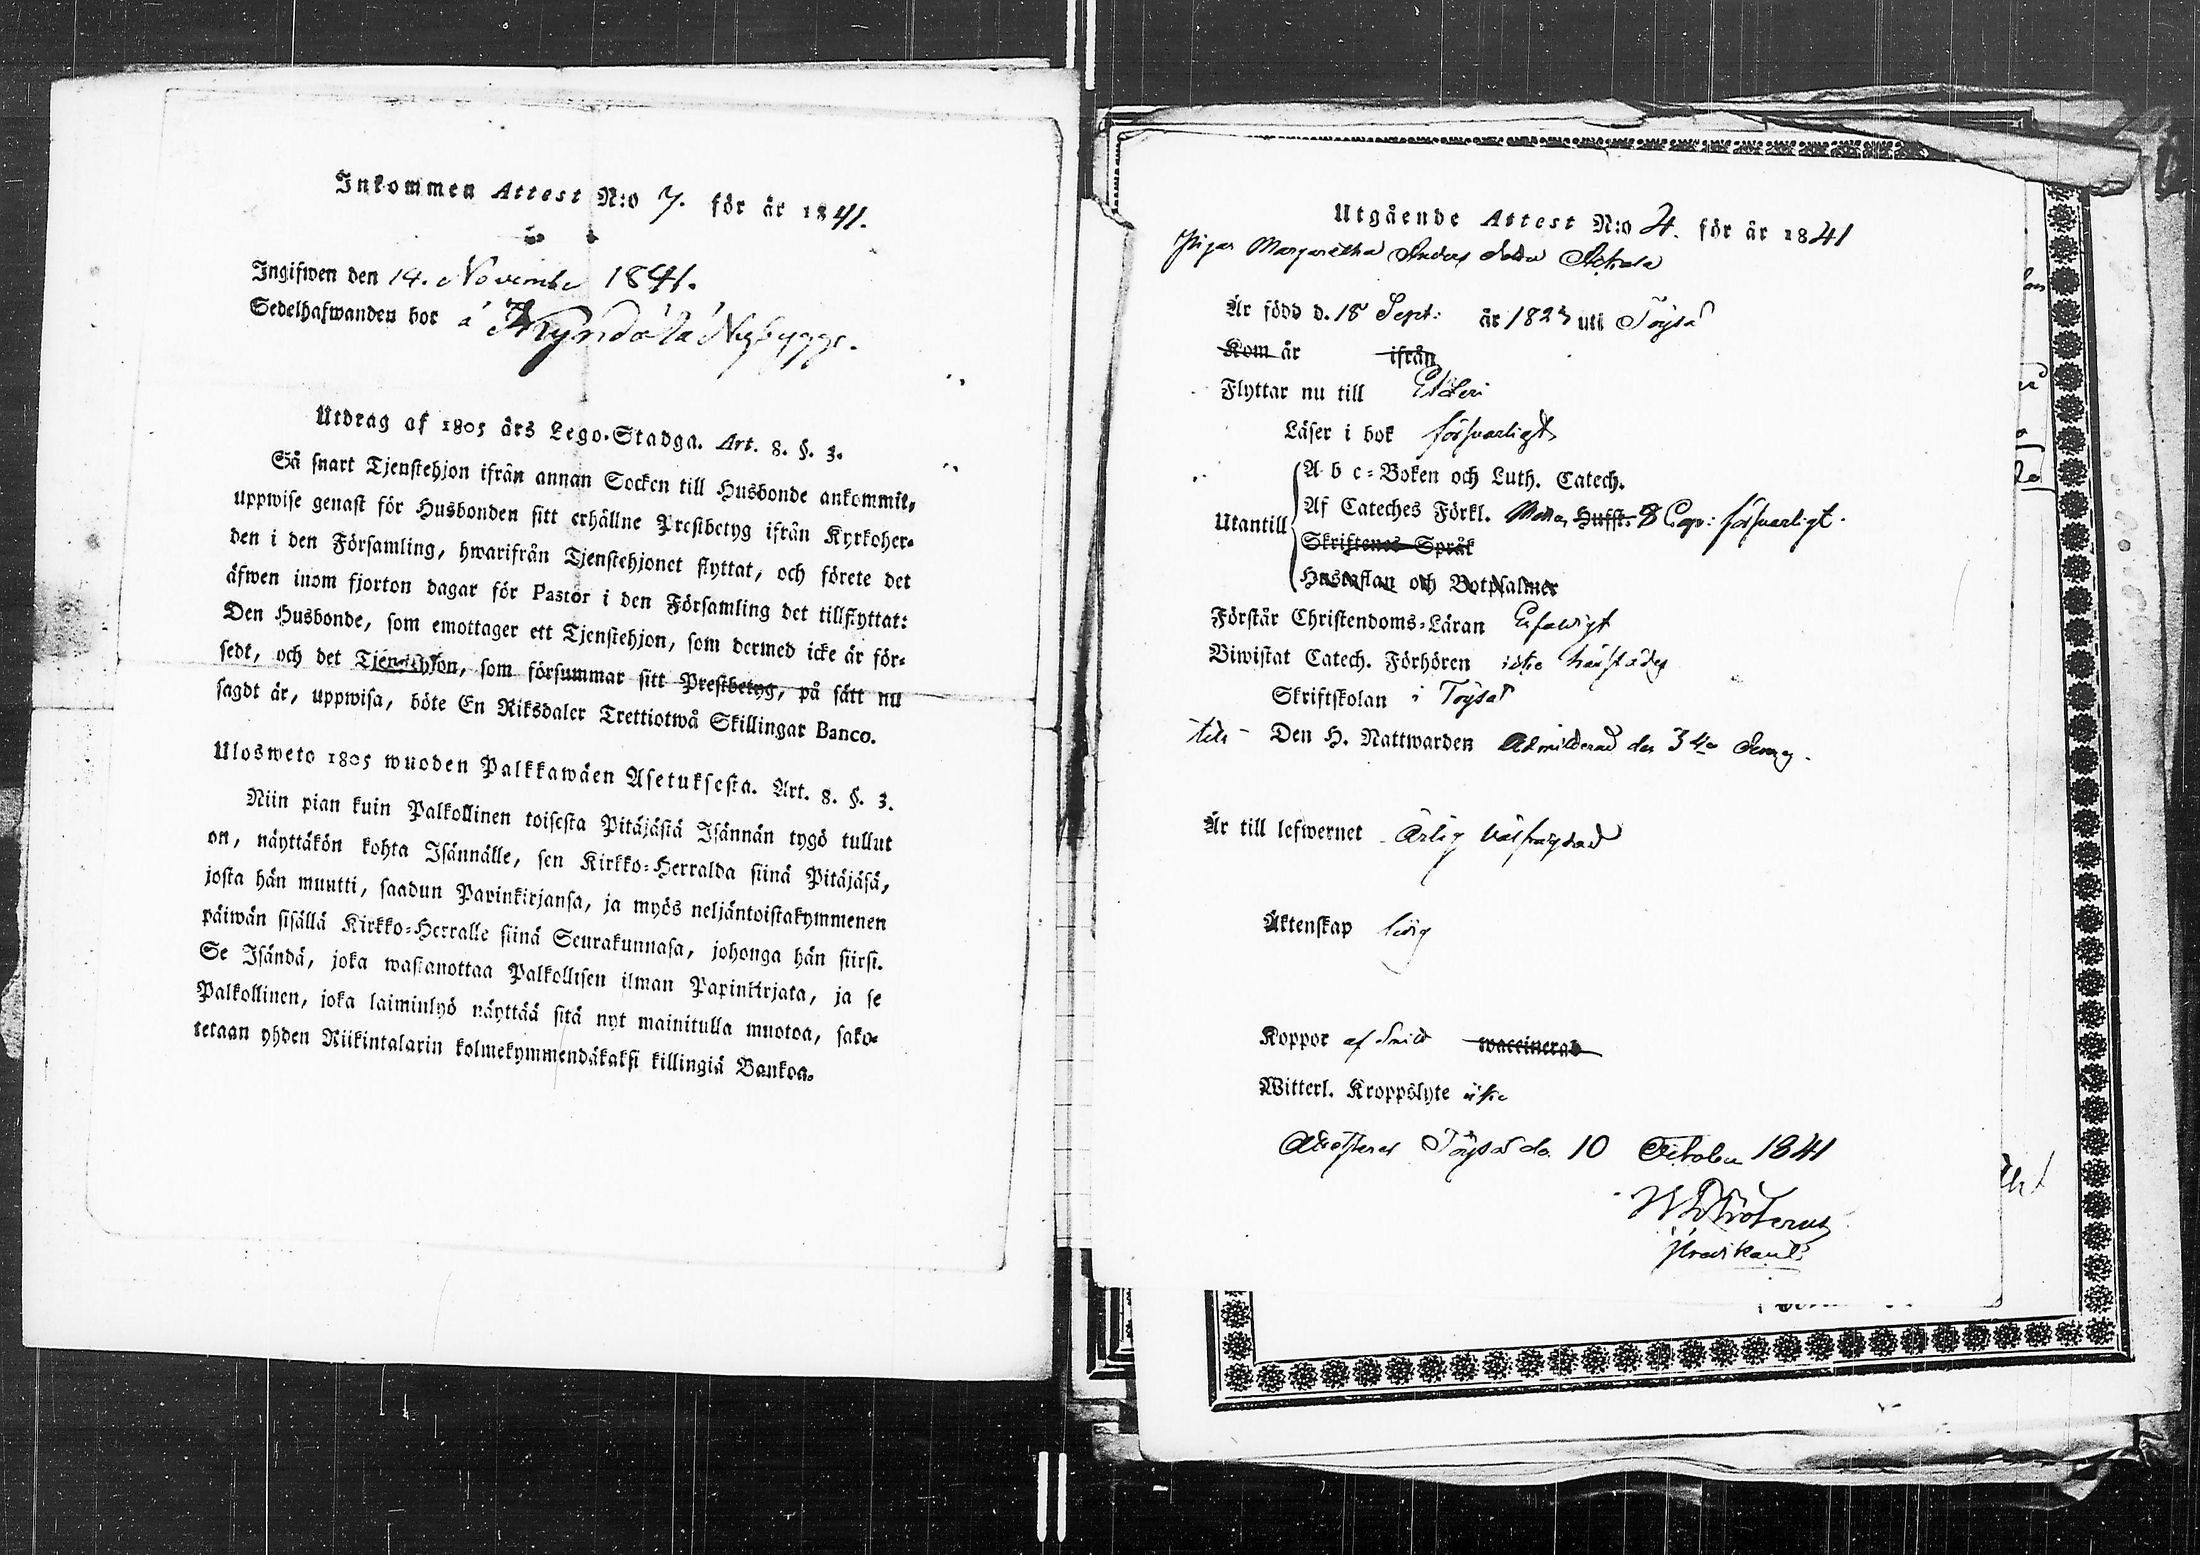 Inkommen Attest N:o 7. för år 1841.
Ingifwen den 14. November 1841.
Sedelhafwanden bor å Nybygge.
Utdrag af 1805 års Lego-Stadga. Art. 8. §. 3.
Så snart Tjenstehjon ifrån annan Socken till Husbonde ankommit,
uppwise genast för Husbonden sitt erhållne Prestbetyg ifrån Kyrkoher-
den i den Församling, hwarifrån Tjenstehjonet flyttat, och förete det
äfwen inom fjorton dagar för Pastor i den Församling det tillflyttat:
Den Husbonde, som emottager ett Tjenstehjon, som dermed icke är för-
sedt, och det Tjenstehjon, som försummar sitt Prestbetyg, på sätt nu
sagdt är, uppwisa, böte En Riksdaler Trettiotwå Skillingar Banco.
Ulosweto 1805 wuoden Palkkawäen Asetuksesta. Art. 8. §. 3.
Niin pian kuin Palkollinen toisesta Pitäjästä Isännän tygö tullut
on, näyttäkön kohta Isännälle, sen Kirkko-Herralda siinä Pitäjäsä,
josta hän muutti, saadun Papinkirjansa, ja myös neljäntoistakymmenen
päiwän sisällä Kirkko-Herralle siinä Seurakunnasa, johonga hän siirsi.
Se Isändä, joka wastanottaa Palkollisen ilman Papinkirjata, ja se
Palkollinen, joka laiminlyö näyttää sitä nyt mainitulla muotoa, sako-
tetaan yhden Riikintalarin kolmekymmendäkaksi killingiä Bankoa.
Utgående Attest N:o 4. för år 1841
Pigan Margaretha Anders Dotter
Är född d. 18 Sept: år 1823 uti Töysä
Kom år ifrån
Flyttar nu till Etseri
Läser i bok försvarligt
A b c-Boken och Luth. Catech.
Utantill Af Cateches Förkl. Hufst. 8 Cap: försvarligt.
Skriftenes Språk
Hustaflan och Botpsalmer
Förstår Christendoms-Läran Enfaldigt
Biwistat Catech. Förhören icke härstädes
Skriftskolan i Töysä
till Den H. Nattwarden Admitterad den
Är till lefwernet Ärlig Välfrägdad
Äktenskap ledig
Koppor af Smitt waccinerad
Witterl. Kroppslyte icke
Attesterar Töysä den 10 October 1841
Predikant